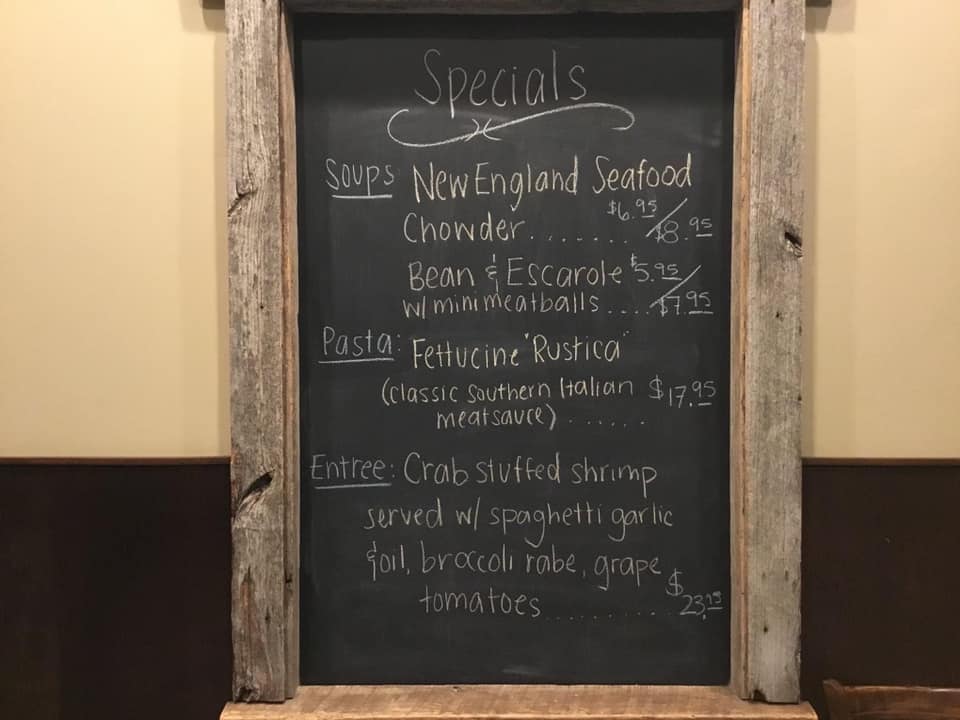 Specials
Soups: New England Seafood
Chowder....... $6.95/$8.95
Bean & Escarole $5.95/
w/ mini meatballs.... $7.95
Pasta: Fettucine "Rustica"
(classic Southern Italian $17.95
meatsauce)......
Entree: Crab stuffed shrimp
served w/ spaghetti garlic
& oil, broccoli rabe, grape
tomatoes.......... $23.95